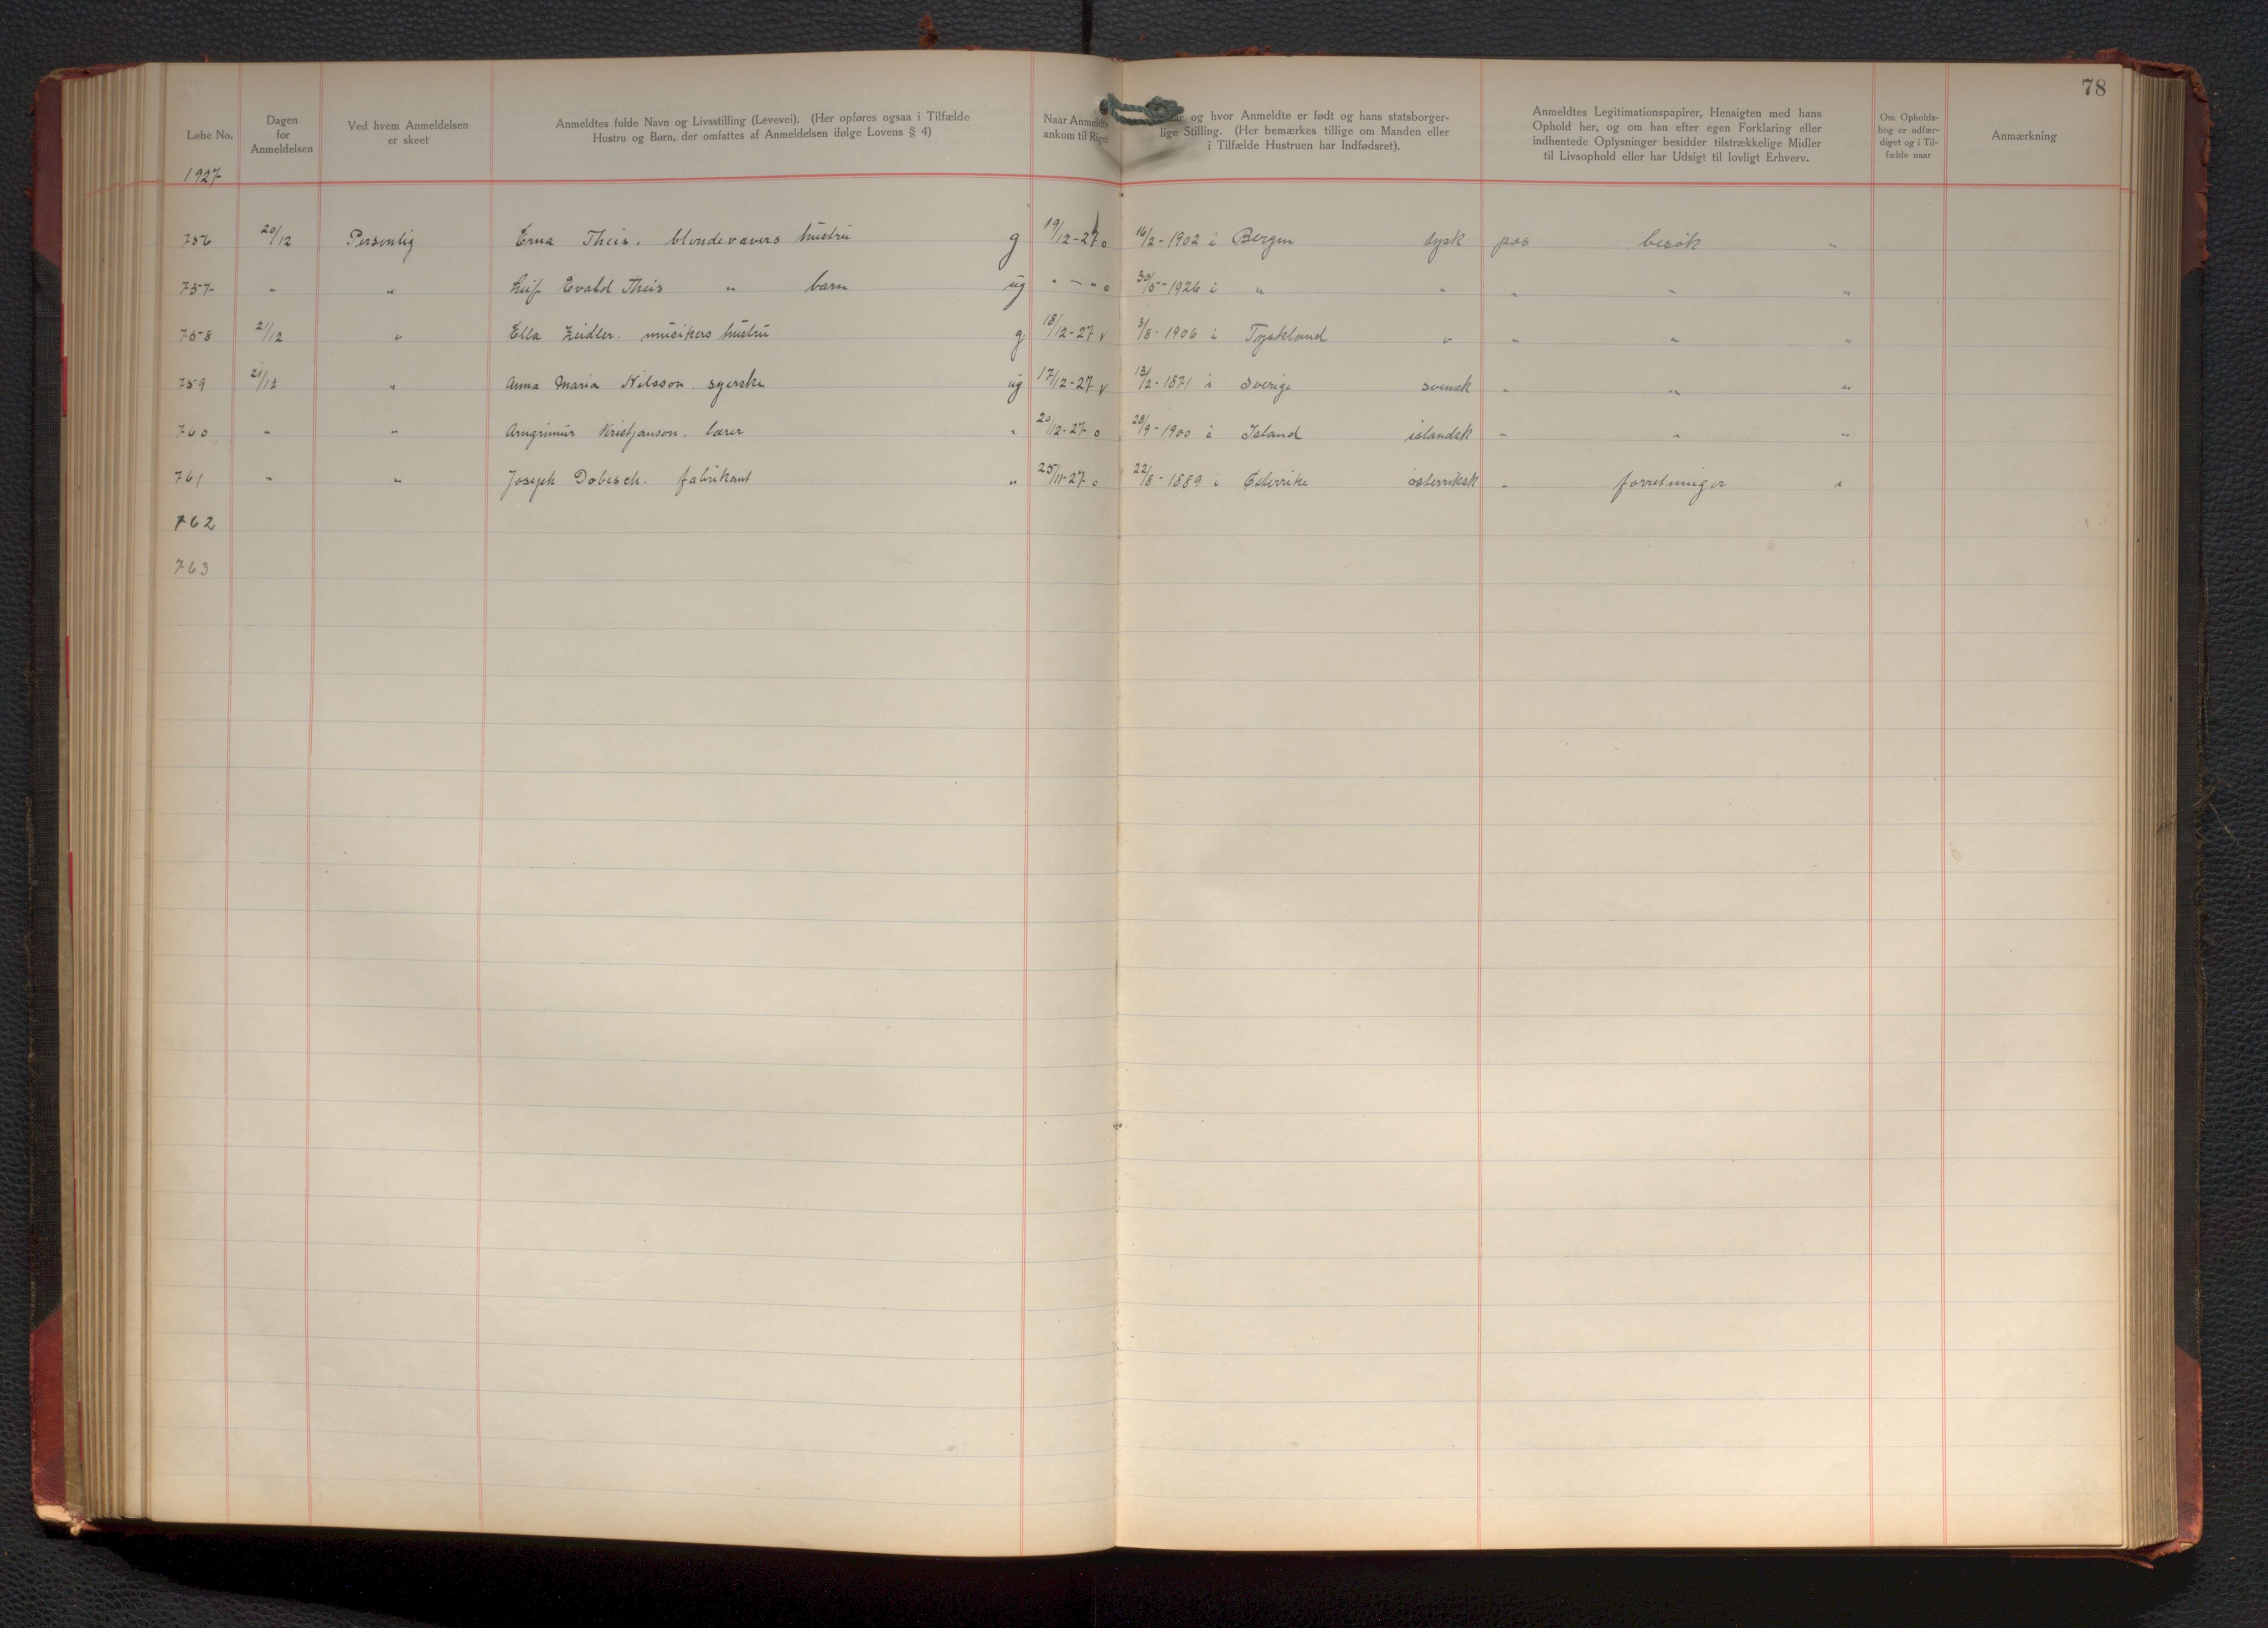 78
Løbe No.
Dagen for Anmeldelsen
Ved hvem Anmeldelsen er skeet
Anmeldtes fulde Navn og Livsstilling (Levevei). (Her opføres ogsaa i Tilfælde
Hustru og Børn, der omfattes af Anmeldelsen ifølge Lovens § 4)
Naar Anmeldte
ankom til Riget
og hvor Anmeldte er født og hans statsborger-
lige Stilling. (Her bemærkes tillige om Manden eller
i Tilfælde Hustruen har Indfødsret).
Anmeldtes Legitimationspapirer, Hensigten med hans
Ophold her, og om han efter egen Forklaring eller
indhentede Oplysninger besidder tilstrækkelige Midler
til Livsophold eller har Udsigt til lovligt Erhverv.
Om Opholds-
bog er udfær-
diget og i Til-
fælde naar
Anmærkning
1927
756 20/12 Personlig Erna Theis. blondevævers hustru g 19/12-27 o 16/2-1902 i Bergen tysk pas besök "
757 " " Leif Evald Theis " barn ug " - " o 30/5-1926 i " " " " "
758 21/12 " Ella Zeidler. musikers hustru g 18/12-27 v 3/8-1906 i Tyskland " " " "
759 21/12 " Anna Maria Nilsson. syerske ug 17/12-27 v 13/2-1871 i Sverige svensk " " "
760 " " Arngrimur Kristjanson. lærer " 20/12-27 o 28/9-1900 i Island islandsk " " "
761 " " Joseph Dobisch. fabrikant " 25/11-27 o 22/8-1889 i Østerrike østerriksk " forretninger "
762
763